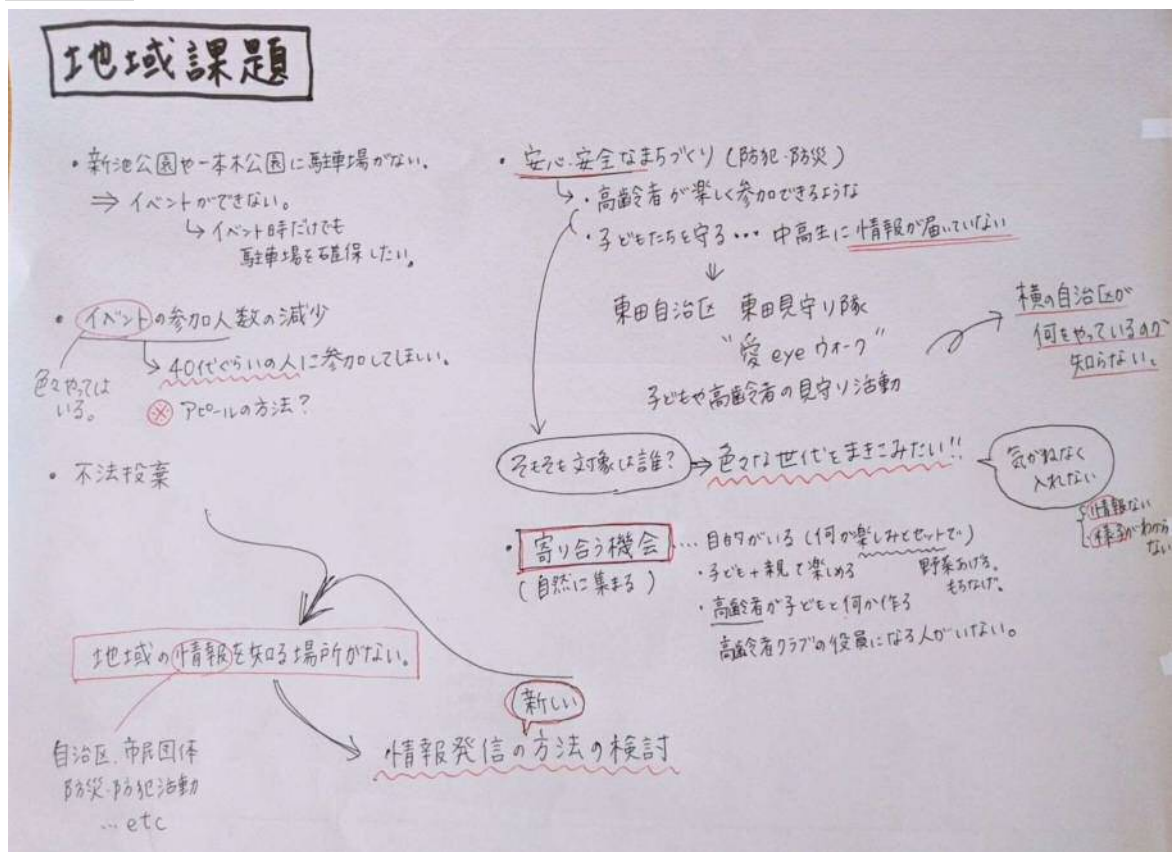 地域課題
・新池公園や一本木公園に駐車場がない。
⇒ イベントができない。
↳ イベント時だけでも
駐車場を確保したい。
・イベントの参加人数の減少
↳ 40代ぐらいの人に参加してほしい。
色々やっては
いる。
※ アピールの方法？
・不法投棄
地域の情報を知る場所がない。
自治区、市民団体
防災・防犯活動
…etc
新しい
情報発信の方法の検討
・安心・安全なまちづくり（防犯・防災）
↳・高齢者が楽しく参加できるような
・子どもたちを守る… 中高生に情報が届いていない
⇓
東田自治区 東田見守り隊
“愛eyeウォーク”
子どもや高齢者の見守り活動
横の自治区が
何をやっているのか
知らない。
そもそも対象は誰？⇒色々な世代をまきこみたい!!
気がねなく
入れない
情報ない
様子がわから
ない
・寄り合う機会…目的がいる（何か楽しみとセットで）
（自然に集まる）
・子ども＋親で楽しめる
野菜あげる。
もちなげ。
・高齢者が子どもと何か作る
高齢者クラブの役員になる人がいない。